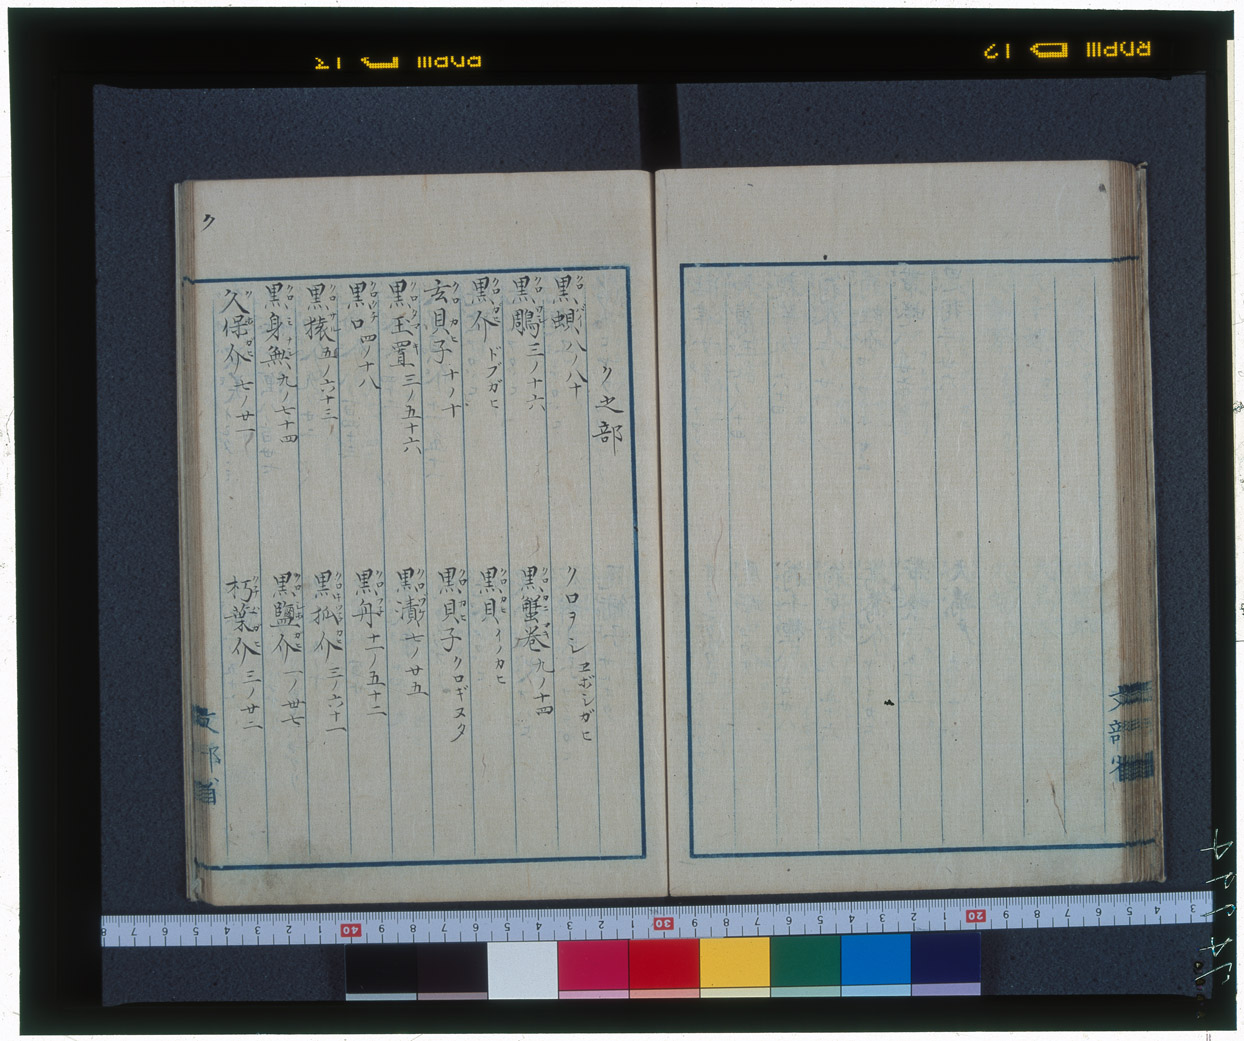 ク之部
黒蜆 八ノ八十
クロヲシ ヱボシガヒ
黒鵰 三ノ十六
黒蟹巻 九ノ十四
黒介 ドブガヒ
黒貝 イノカヒ
玄貝子 十ノ十
黒貝子 クロギヌタ
黒玉置 三ノ五十六
黒漬 七ノ廿五
黒口 四ノ十八
黒丹 十一ノ五十二
黒猿 五ノ六十三
黒狐介 三ノ六十一
黒身無 九ノ七十四
黒鹽介 一ノ卅七
久保介 七ノ廿一
朽葉介 三ノ廿二
ク
文部省
文部省
RDPIII 12
RDPIII 12